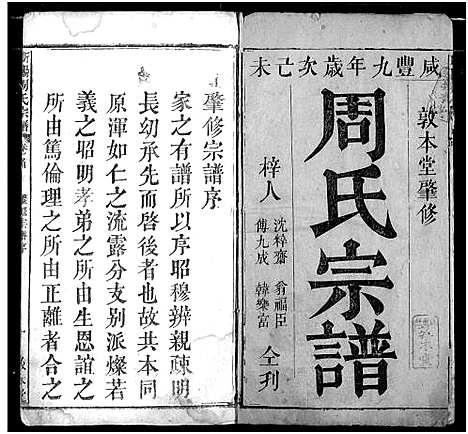 咸豐九年歲次己亡未
敦本堂肇修
周氏宗譜
梓人
沈粹齋
翁福臣
傅九成
韓樂富
仝刊
肇修宗譜序
家之有譜所以序昭穆辨親疎明
長幼承先而啓後者也故共本同
原渾如仁之流露分支别派燦若
義之昭明孝弟之所由生恩誼之
所由篤倫理之所由正離者合之